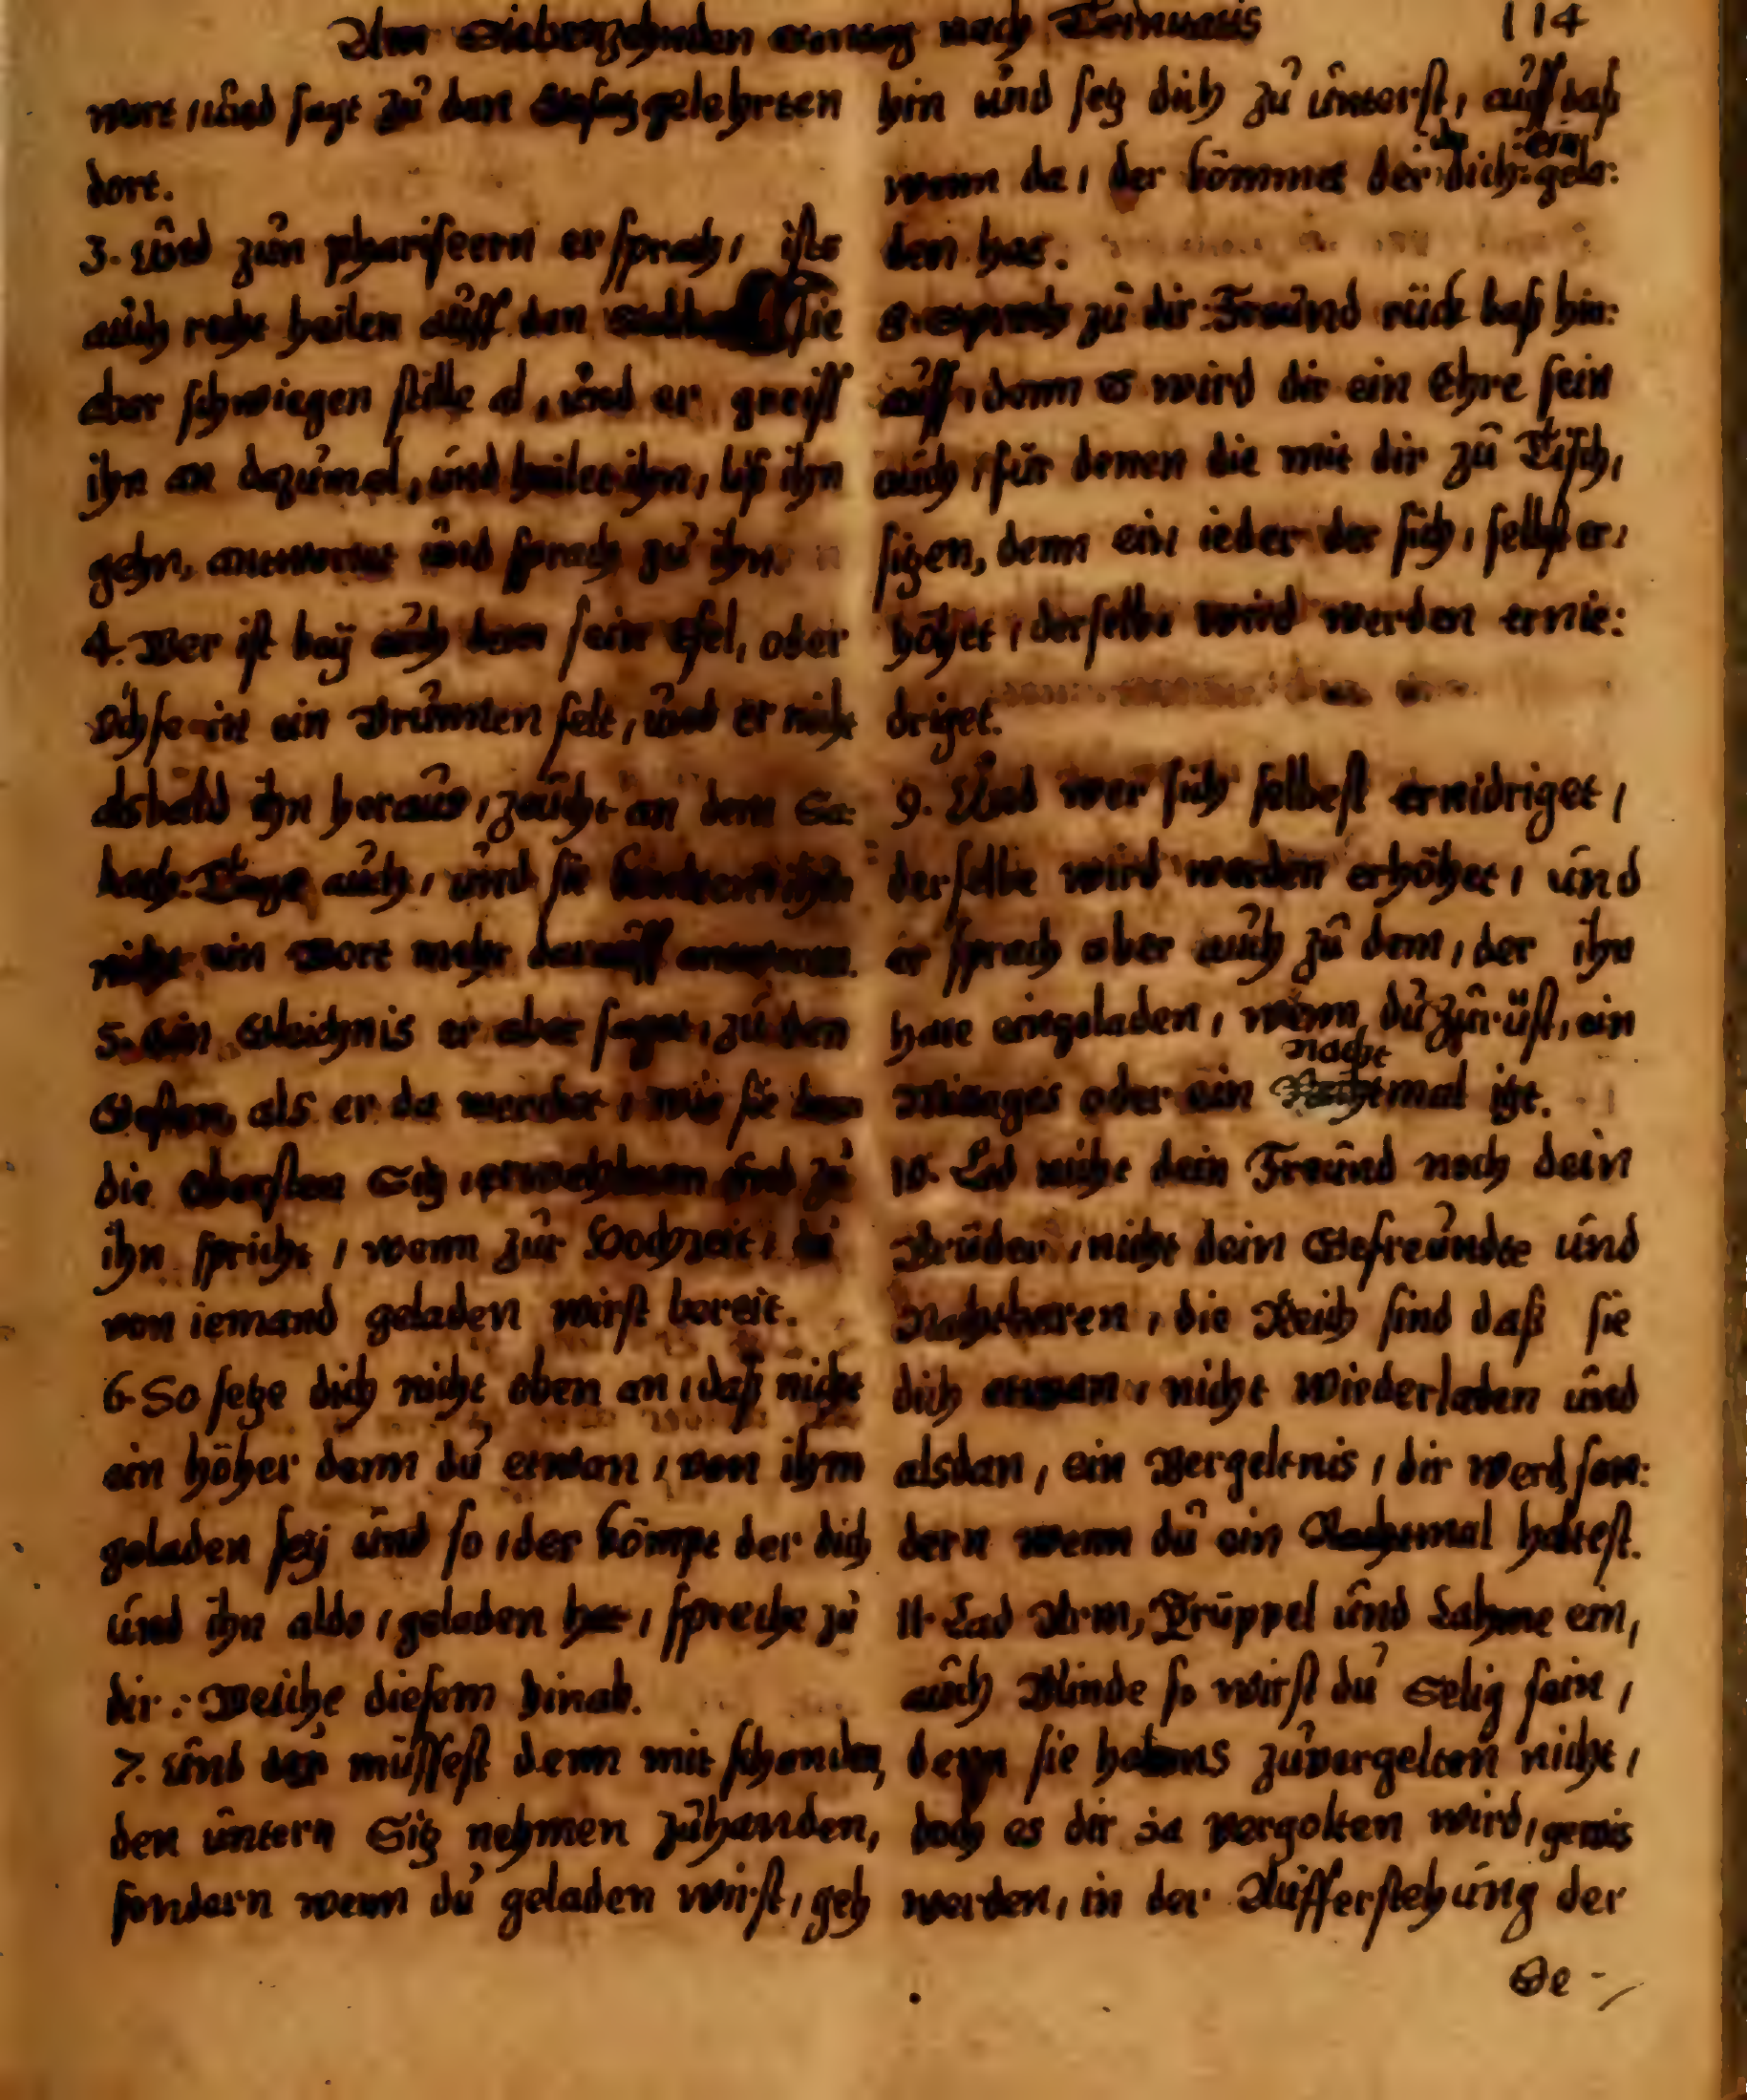 Am Siebenzehnden Sontag nach Trinitatis 114
wort / und sagt zu den Gesetz gelehrten
dort.
3. Und zun phariseern er sprach / ists
auch recht heilen auff den Sabbath Sie
aber schwiegen stille al, und er greiff
ihn an dazumal, und heilet ihn, liß ihn
gehn, antwortet und sprach zu ihn
4. Wer ist beÿ euch dem sein Esel, oder
Ochse in ein Brunnen felt, und er nicht
alsbald ihn heraus / zeucht an dem Sa:
bath: Tage auch, und sie kondten ihm
nicht ein Wort mehr darauff antworten.
5. Ein Gleichnis er aber saget, zu den
Gesten, als er da mercket / wie sie
die obersten Sitz, erwehleten und zu
ihn spricht / wenn zur Hochzeit, du
von iemand geladen wirst bereit.
6. So setze dich nicht oben an, daß nicht
ein höher denn du etwan, von ihm
geladen seÿ und so / der kömpt der dich
und ihn aldo / geladen hat, spreche zu
dir: Weiche diesem hinab.
7. Und du müssest denn mit schanden,
den untern Sitz nehmen zuhanden,
sondern wenn du geladen wirst, geh
hin und setz dich zu unterst, auff daß
wenn da, der kömmet der dich gela:
den hat.
8. Sprech zu dir Freund rück baß hin:
auff, denn es wird dir ein Ehre sein
auch, für denen die mit dir zu Tisch,
sitzen, denn ein ieder der sich, selbst er:
höhet, derselbe wird werden ernie:
driget.
9. Und wer sich selbest ernidriget,
derselbe wird werden erhöhet, und
er sprach aber auch zu dem, der ihn
hatt eingeladen, wenn du zurüst, ein
Mittages oder ein Nachtmal itzt.
10. Lad nicht dein Freund noch dein
Brüder, nicht dein Gefreundte und
Nachtbaren, die Reich sind daß sie
dich etwan, nicht wiederladen und
alsdan, ein Vergeltnis, dir werd son:
dern wenn du ein Nachtmal haltest.
11. Lad Arm, Krüppel und Lahme ein,
auch Blinde so wirst du Selig sein,
denn sie habens zuvergelten nicht,
doch es dir ja vergolten wird, gewis
werden, in der Aufferstehung der
Ge-